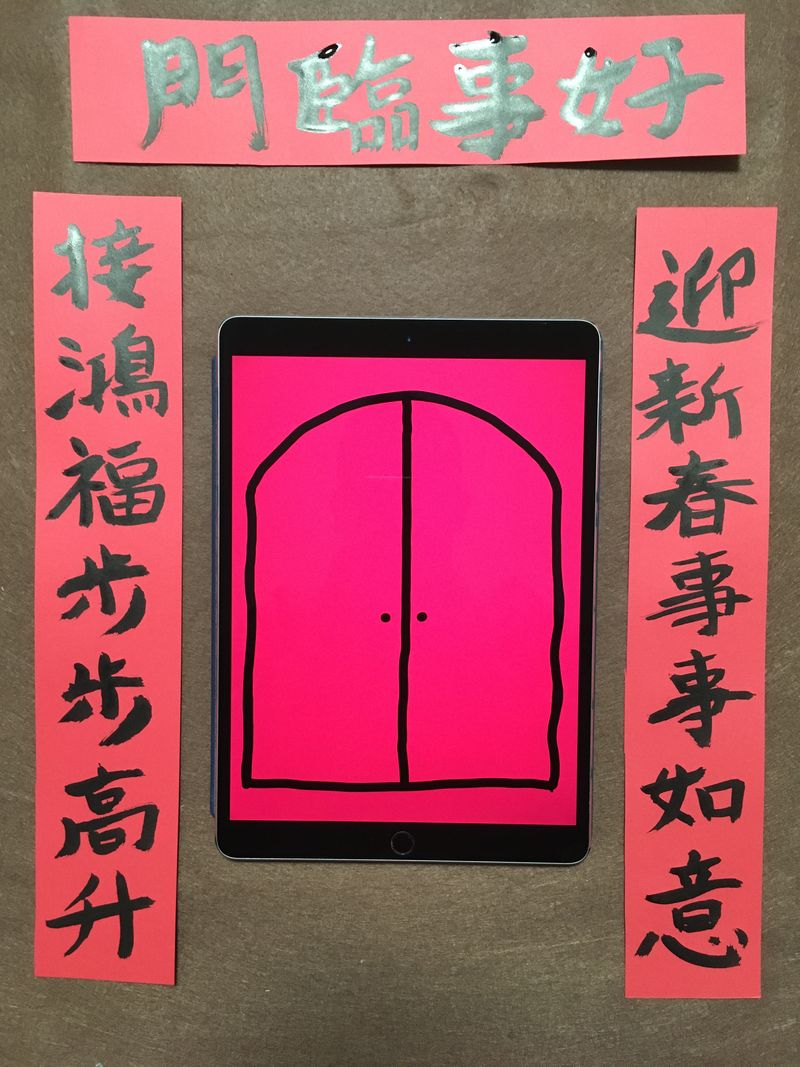 好事臨門
迎新春事事如意
接鴻福步步高升